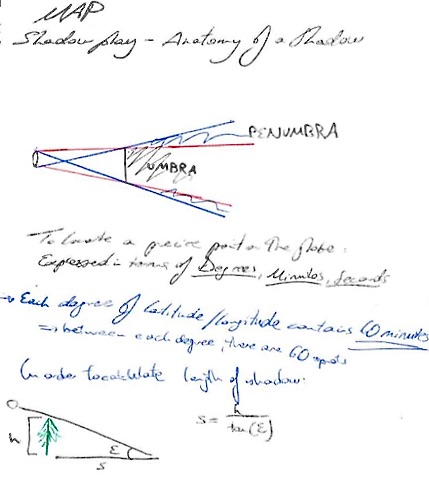 MAP
Shadow play - Anatomy of a Shadow
PENUMBRA
UMBRA
To locate a precise point on the globe.
Expressed in terms of Degrees, Minutes, Seconds
→ Each degree of latitude/longitude contains 60 minutes
⇒ between each degree, there are 60 spots
In order to calculate length of shadow:
s = h / tan(ε)
h
ε
s